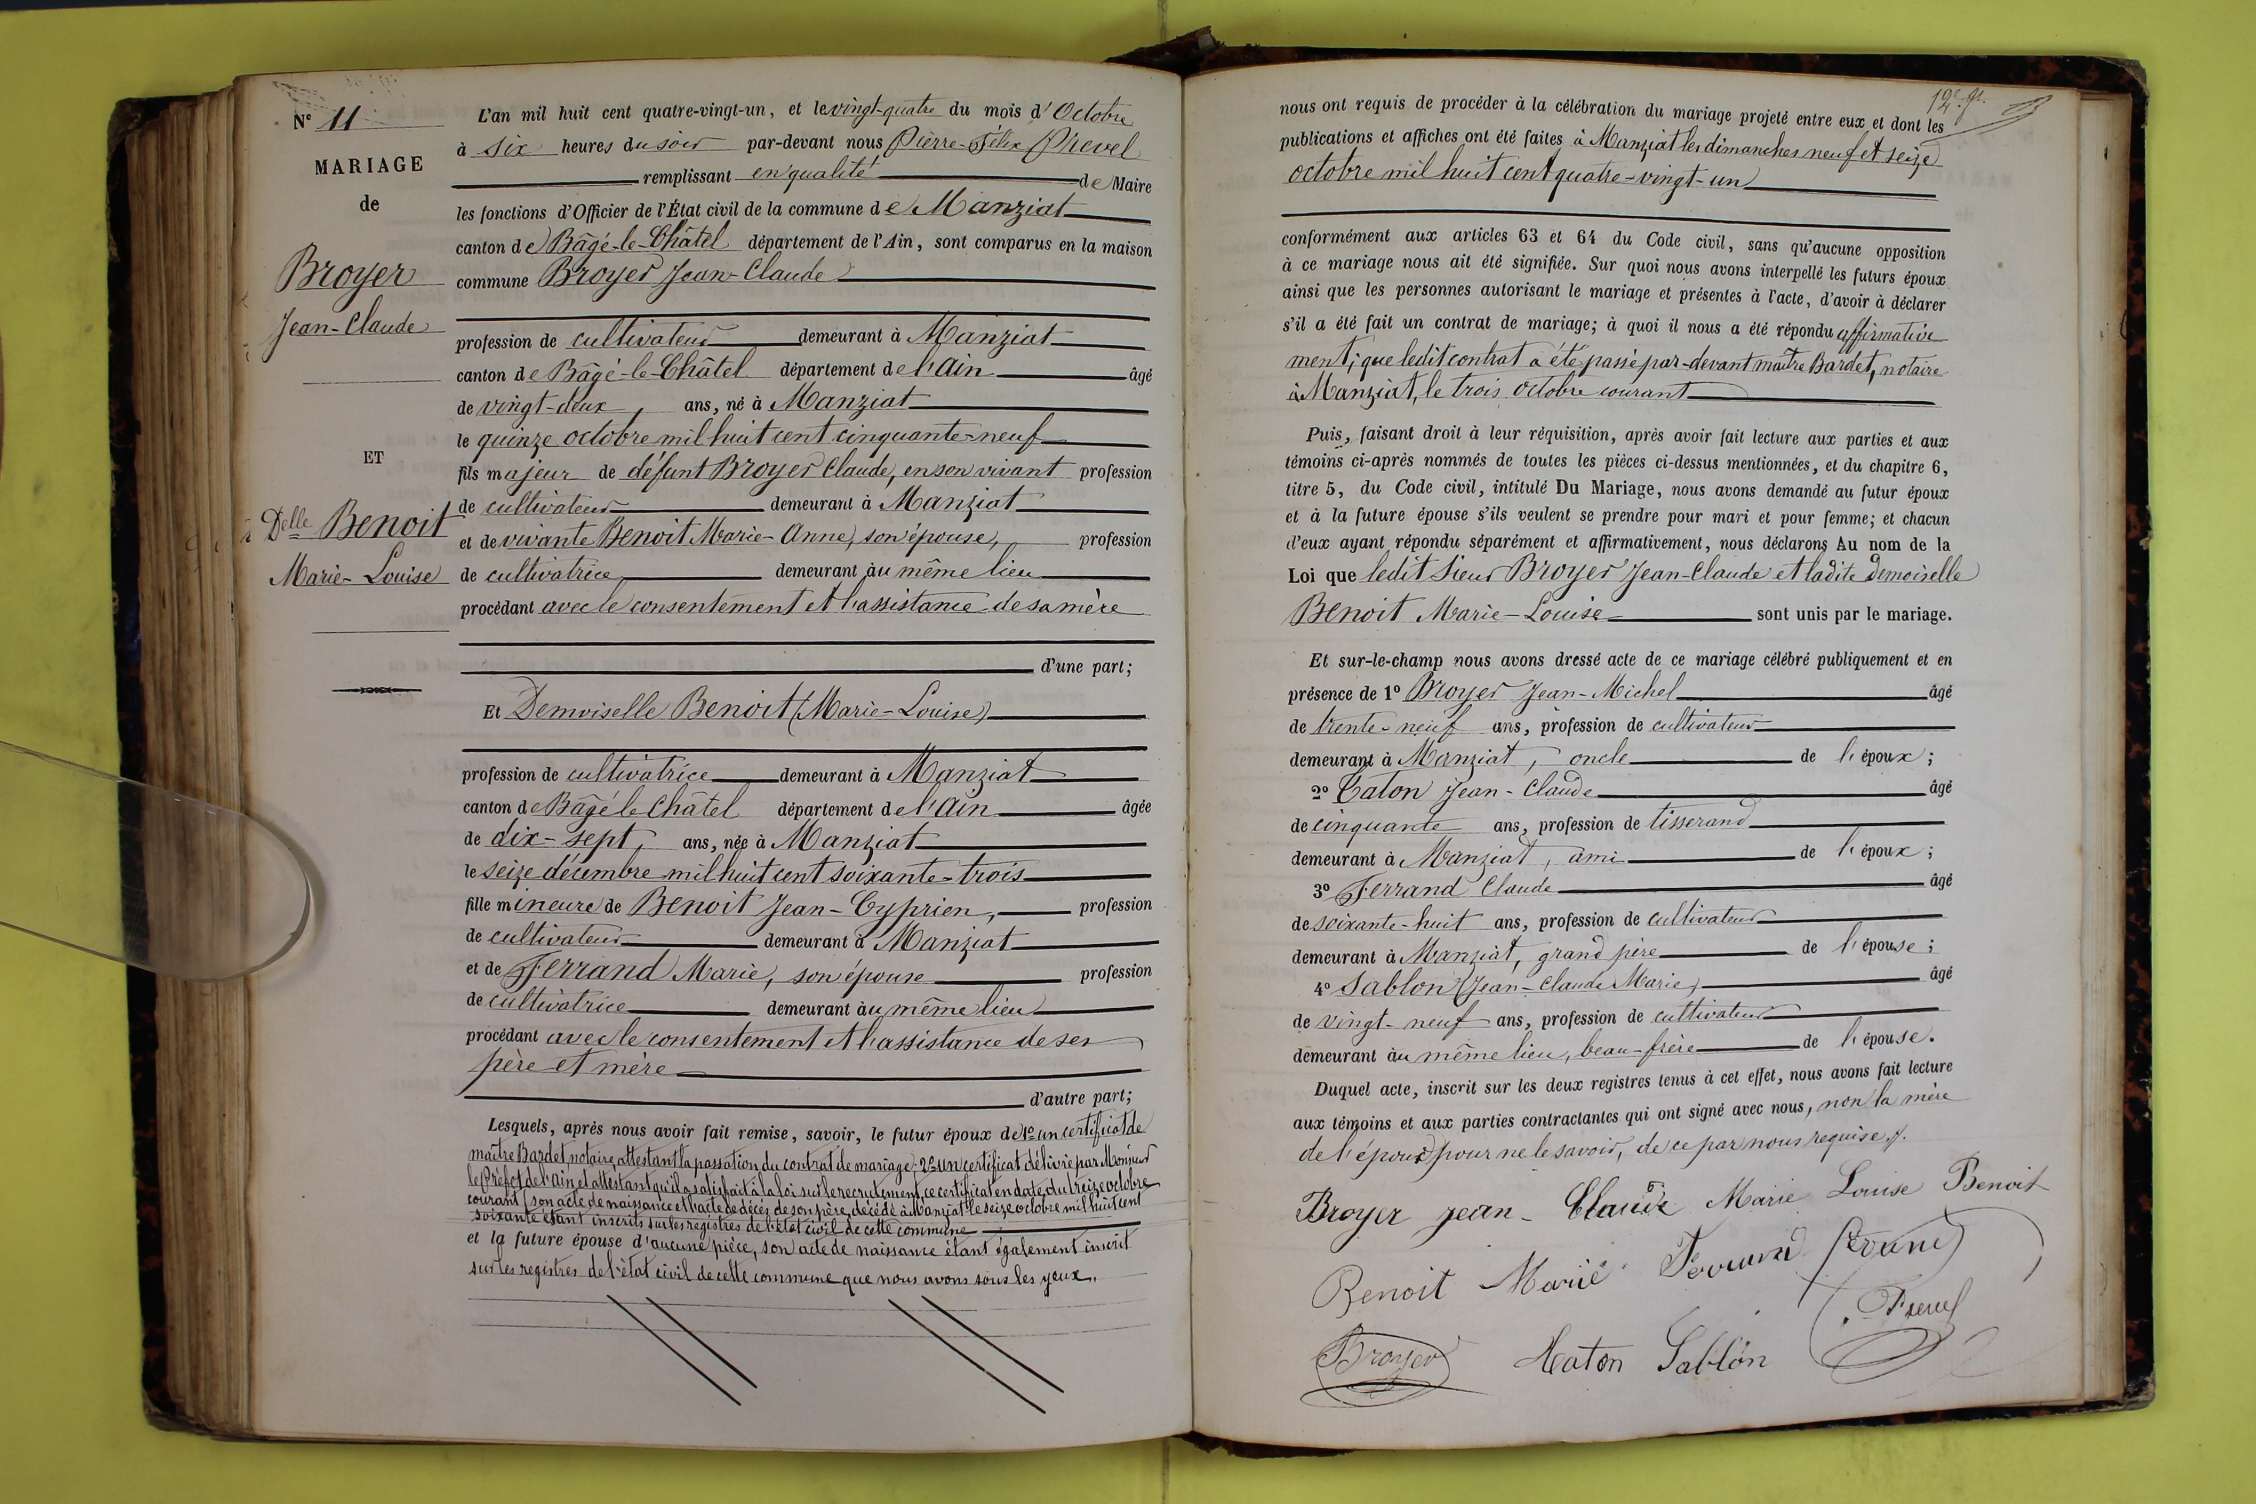 N° 11
MARIAGE
de
Broyer
Jean-Claude
ET
Delle Benoit
Marie-Louise
L'an mil huit cent quatre-vingt-un, et le vingt-quatre du mois d'Octobre
à six heures du soir par-devant nous Pierre-Félix Prevel
remplissant en qualité de Maire
les fonctions d'Officier de l'État civil de la commune de Manziat
canton de Bâgé-le-Châtel département de l'Ain, sont comparus en la maison
commune Broyer Jean-Claude
profession de cultivateur demeurant à Manziat
canton de Bâgé-le-Châtel département de l'Ain âgé
de vingt-deux, ans, né à Manziat
le quinze octobre mil huit cent cinquante-neuf
fils majeur de défunt Broyer Claude, en son vivant profession
de cultivateur demeurant à Manziat
et de vivante Benoit Marie-Anne, son épouse, profession
de cultivatrice demeurant au même lieu
procédant avec le consentement et l'assistance de sa mère
d'une part;
Et Demoiselle Benoit (Marie-Louise)
profession de cultivatrice demeurant à Manziat
canton de Bâgé le Châtel département de l'Ain âgée
de dix-sept, ans, née à Manziat
le seize décembre mil huit cent soixante-trois
fille mineure de Benoit Jean-Cyprien, profession
de cultivateur demeurant à Manziat
et de Ferrand Marie, son épouse profession
de cultivatrice demeurant au même lieu
procédant avec le consentement et l'assistance de ses
père et mère
d'autre part;
Lesquels, après nous avoir fait remise, savoir, le futur époux de 1° un certificat de
maître Bardet, notaire, attestant la passation du contrat de mariage; 2° un certificat délivré par Monsieur
le Préfet de l'Ain et attestant qu'il a satisfait à la loi sur le recrutement, ce certificat en date du treize octobre
courant (son acte de naissance et l'acte de décès de son père, décédé à Manziat le seize octobre mil huit cent
soixante étant inscrits sur les registres de l'état civil de cette commune
et la future épouse d'aucune pièce, son acte de naissance étant également inscrit
sur les registres de l'état civil de cette commune que nous avons sous les yeux.
nous ont requis de procéder à la célébration du mariage projeté entre eux et dont les
publications et affiches ont été faites à Manziat les dimanches neuf et seize
octobre mil huit cent quatre-vingt-un
conformément aux articles 63 et 64 du Code civil, sans qu'aucune opposition
à ce mariage nous ait été signifiée. Sur quoi nous avons interpellé les futurs époux
ainsi que les personnes autorisant le mariage et présentes à l'acte, d'avoir à déclarer
s'il a été fait un contrat de mariage; à quoi il nous a été répondu affirmative
ment; que ledit contrat a été passé par-devant maître Bardet, notaire
à Manziat, le trois octobre courant
Puis, faisant droit à leur réquisition, après avoir fait lecture aux parties et aux
témoins ci-après nommés de toutes les pièces ci-dessus mentionnées, et du chapitre 6,
titre 5, du Code civil, intitulé Du Mariage, nous avons demandé au futur époux
et à la future épouse s'ils veulent se prendre pour mari et pour femme; et chacun
d'eux ayant répondu séparément et affirmativement, nous déclarons Au nom de la
Loi que ledit Sieur Broyer Jean-Claude et ladite Demoiselle
Benoit Marie-Louise sont unis par le mariage.
Et sur-le-champ nous avons dressé acte de ce mariage célébré publiquement et en
présence de 1° Broyer Jean-Michel âgé
de trente-neuf ans, profession de cultivateur
demeurant à Manziat, oncle de l'époux;
2° Caton Jean-Claude âgé
de cinquante ans, profession de tisserand
demeurant à Manziat, ami de l'époux;
3° Ferrand Claude âgé
de soixante-huit ans, profession de cultivateur
demeurant à Manziat, grand père de l'épouse;
4° Sablon (Jean-Claude Marie) âgé
de vingt-neuf ans, profession de cultivateur
demeurant au même lieu, beau-frère de l'épouse.
Duquel acte, inscrit sur les deux registres tenus à cet effet, nous avons fait lecture
aux témoins et aux parties contractantes qui ont signé avec nous, non la mère
de l'époux pour ne le savoir, de ce par nous requise.
Broyer jean-Claude Marie Louise Benoit
Benoit Marie Ferrand
Prevel
Broyer Caton Sablon